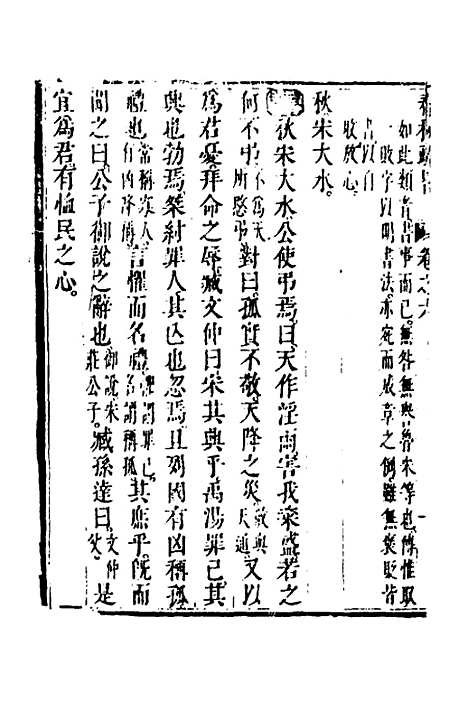 春秋
卷之六
如此類者書事而已無咎無與魯宋等也傳惟取
一敗字以明書法亦宛而成章之例雖無褒貶皆
書以自
收放心
秋宋大水。
秋宋大水公使弔焉曰天作淫雨害我粢盛若之
何不弔不為天所愍弔對曰孤實不敬天降之災又以
為君憂拜命之辱臧文仲曰宋其興乎禹湯罪己其
興也勃焉桀紂罪人其亡也忽焉且列國有凶稱孤
禮也常稱寡人凶降稱孤言懼而名禮其庶乎既而
聞之曰公子御說之辭也御說宋莊公子臧孫達曰文仲是
宜為君有恤民之心。